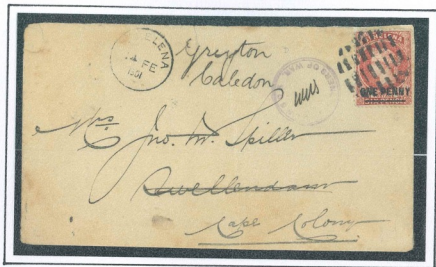 ST HELENA
FE
Greyton
Caledon
ONE PENNY
Mrs. Jno. M. Spiller
Swellendam
Cape Colony